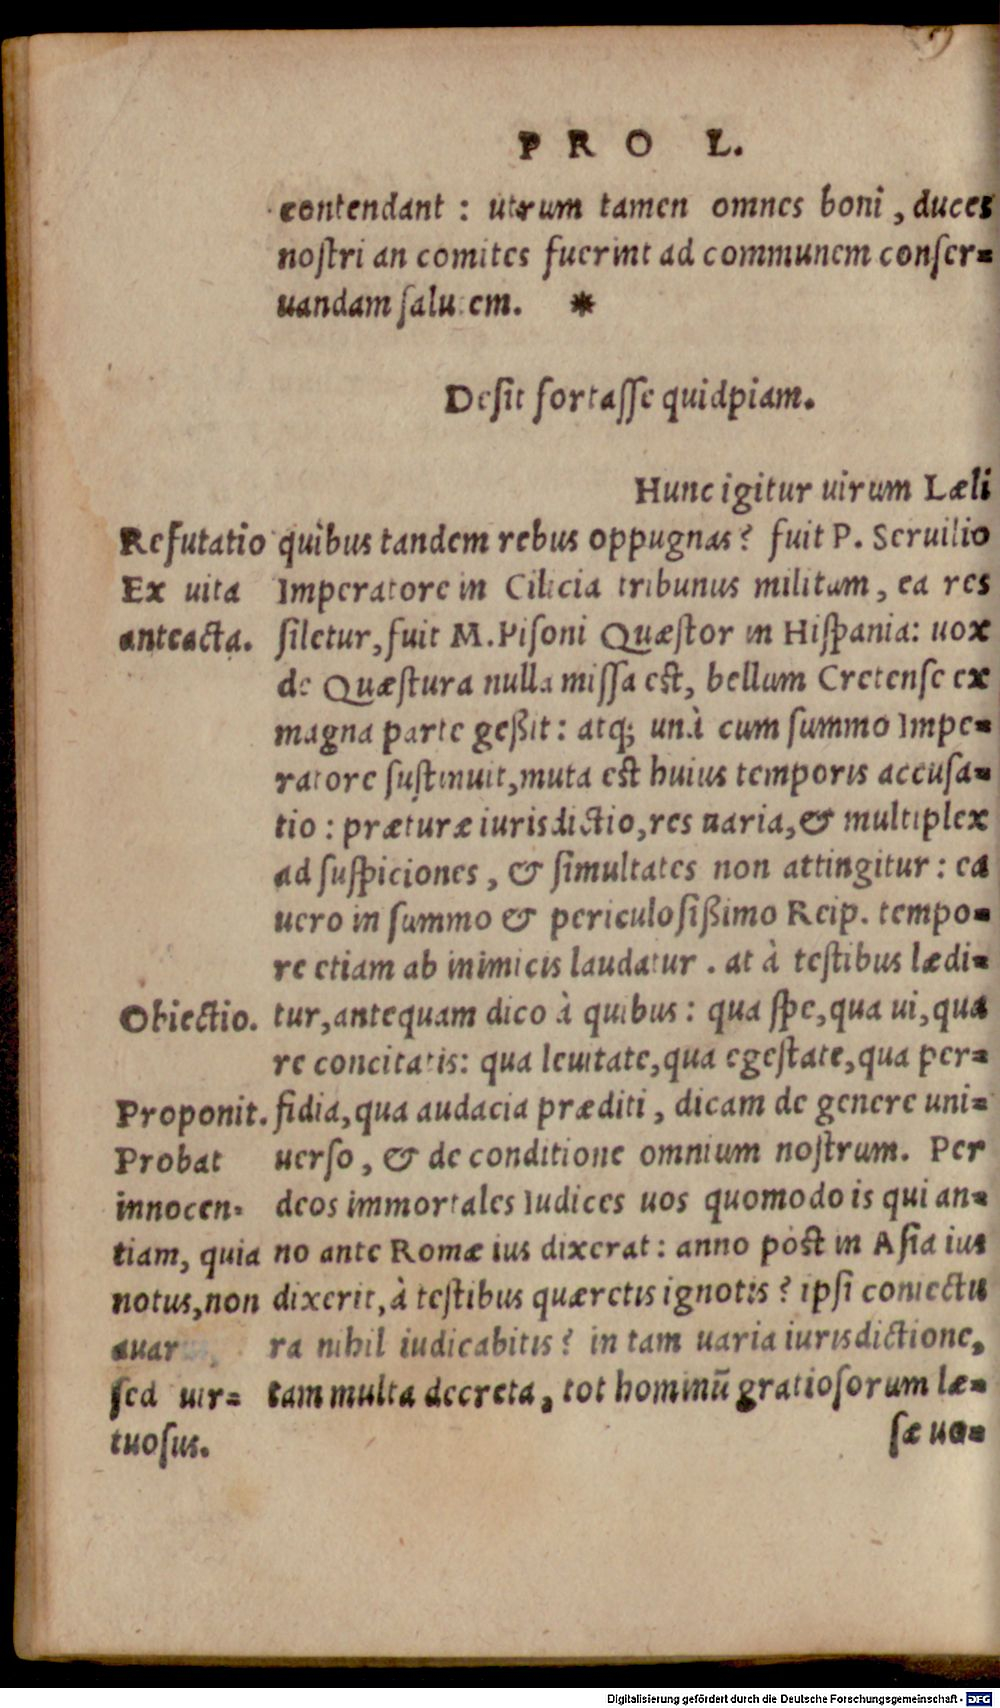 PRO L.
contendant : utrum tamen omnes boni, duces
nostri an comites fuerint ad communem conser=
uandam salu em. *
Desit fortasse quidpiam.
Hunc igitur uirum Læli
Refutatio quibus tandem rebus oppugnas? fuit P. Seruilio
Ex uita Imperatore in Cilicia tribunus militum, ea res
anteacta. siletur, fuit M. Pisoni Quæstor in Hispania: uox
de Quæstura nulla missa est, bellum Cretense ex
magna parte geßit: atq; unà cum summo Impe=
ratore sustinuit, muta est huius temporis accusa=
tio : præturæ iurisdictio, res uaria, & multiplex
ad suspiciones, & simultates non attingitur: ea
uero in summo & periculosißimo Reip. tempo=
re etiam ab inimicis laudatur. at à testibus lædi=
Obiectio. tur, antequam dico à quibus: qua spe, qua ui, qua
re concitatis: qua leuitate, qua egestate, qua per=
Proponit. fidia, qua audacia præditi, dicam de genere uni=
Probat uerso, & de conditione omnium nostrum. Per
innocen= deos immortales Iudices uos quomodo is qui an=
tiam, quia no ante Romæ ius dixerat: anno pòst in Asia ius
notus, non dixerit, à testibus quæretis ignotis? ipsi coniectu
auar ra nihil iudicabitis? in tam uaria iurisdictione,
sed uir= tam multa decreta, tot hominū gratiosorum læ=
tuosus. sæ uo=
Digitalisierung gefördert durch die Deutsche Forschungsgemeinschaft - DFG